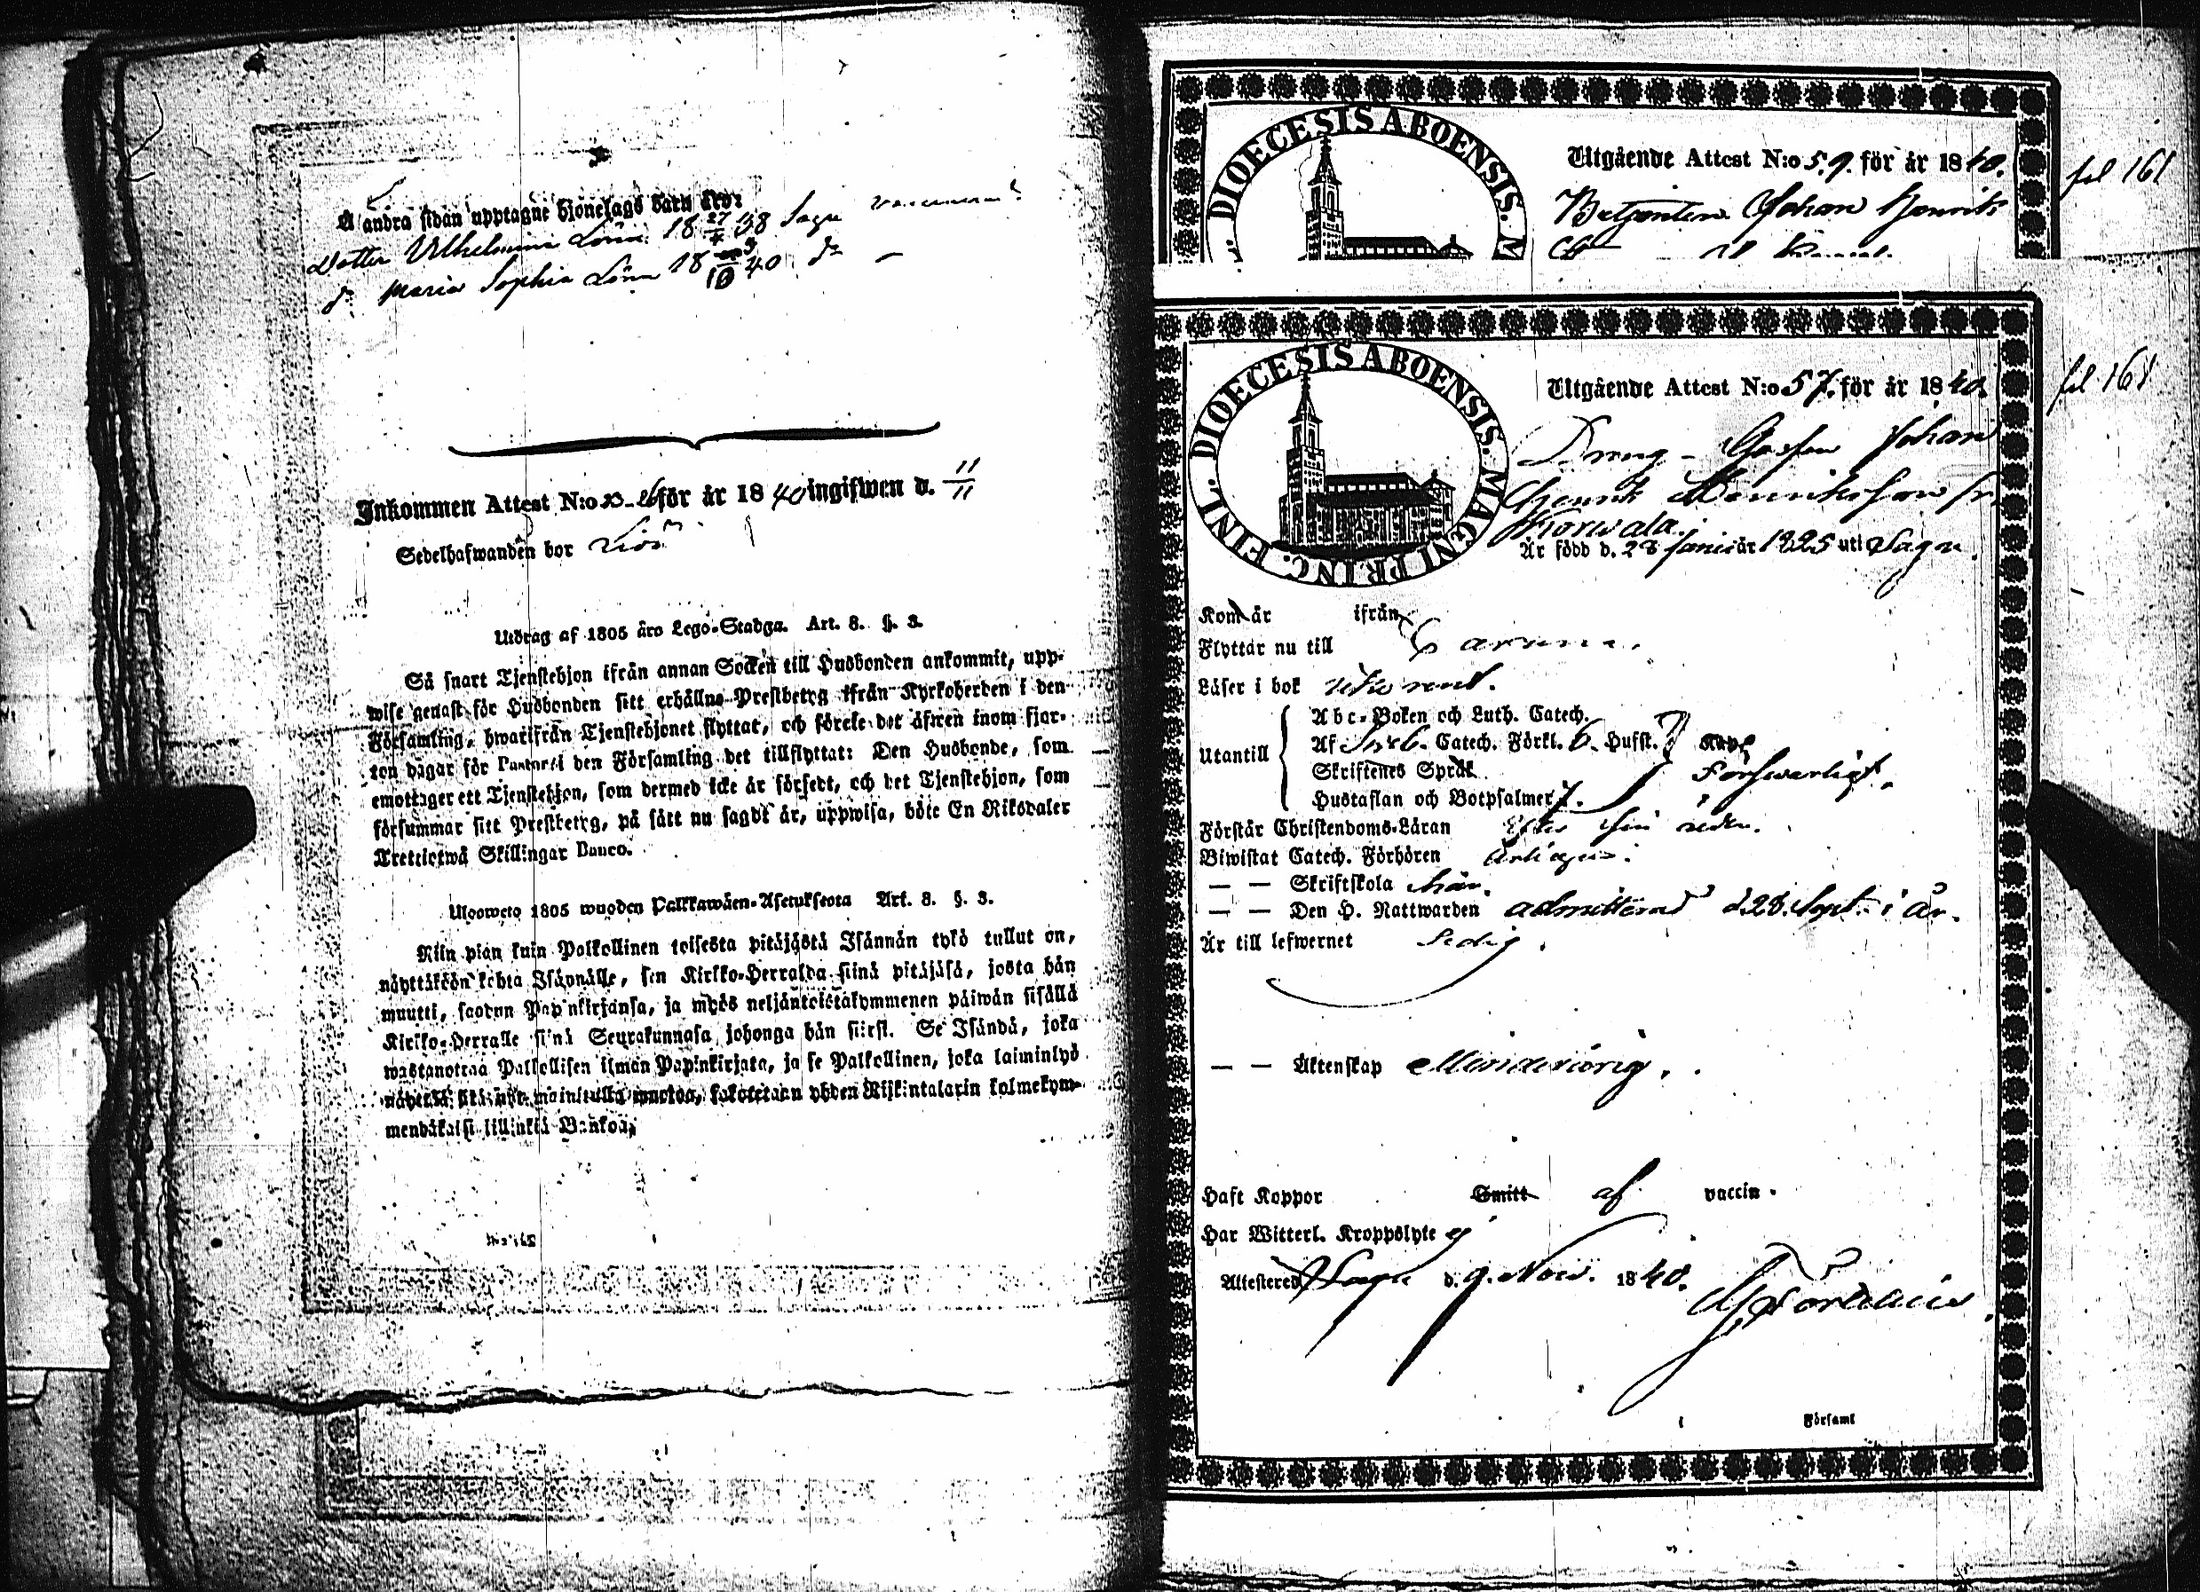 Å andra sidan upptagne hjonelags barn äro:
Dotter Vilhelmina 18 27/4 38 Sagu
Dr Maria Sophia 18 40 Dr —
Inkommen Attest N:o för år 1840 ingifwen d. 11/11
Sedelhafwanden bor
Utdrag af 1805 åro Lego-Stadga. Art. 8. §. 3.
Så snart Tjenstehjon ifrån annan Socken till Husbonden ankommit, upp-
wise genast för Husbonden sitt erhållne Prestbetyg ifrån Kyrkoherden i den
Församling, hwarifrån Tjenstehjonet flyttat, och förete det äfwen inom fjor-
ton dagar för Pastor i den Församling det tillflyttat: Den Husbonde, som
emottager ett Tjenstehjon, som dermed icke är försedt, och det Tjenstehjon, som
försummar sitt Prestbetyg, på sätt nu sagdt är, uppwisa, böte En Riksdaler
Trettiotwå Skillingar Banco.
Ulosweto 1805 wuoden Palkkawäen-Asetuksesta Art. 8. §. 3.
Niin pian kuin Palkollinen toisesta pitäjästä Isännän tykö tullut on,
näyttäköön kohta Isännälle, sen Kirkko-Herralda siinä pitäjäsä, josta hän
muutti, saadun Papinkirjansa, ja myös neljäntoistakymmenen päiwän sisällä
Kirkko-Herralle siinä Seurakunnasa johonga hän siirsi. Se Isändä, joka
wastanottaa Palkollisen ilman Papinkirjata, ja se Palkollinen, joka laiminlyö
näyttää sitä, nyt mainitulla muotoa, sakotetaan yhden Riikintalarin kolmekym-
mendäkaksi killinkiä Bankoa.
DIOECESIS ABOENSIS. M
Utgående Attest N:o 59. för år 1840.
fol 161
Johan Henrik
DIOECESIS ABOENSIS. MAGNI PRINC. FINL.
Utgående Attest N:o 57. för år 1840.
fol 161
Dreng - Gossen Johan
Henrik Henriksson fr.
Korwala.
Är född d. 28 Januiär 1825 uti Sagu.
Kom år ifrån
Flyttar nu till Karuna.
Läser i bok
Utantill
Abc-Boken och Luth. Catech.
Af Sveb. Catech. Förkl. 6. Husst.
Skriftenes Språk
Försvarligt.
Hustaflan och Botpsalmer 7.
Förstår Christendoms-Läran
Biwistat Catech. Förhören Årligen.
— — Skriftskola här.
— — Den H. Nattwarden admitterad d. 28. Sept. i år.
Är till lefwernet ledig.
— — Äktenskap Minderårig.
Haft Koppor Smitt af vaccin.
Har Witterl. Kroppslyte ej
Attesterad Sagu d. 9. Nov. 1840.
Församl